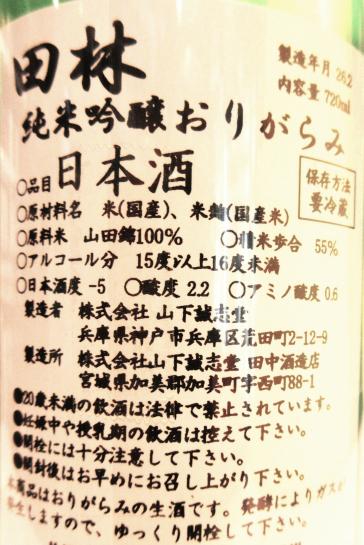 製造年月 26.2
内容量 720ml
田林
純米吟醸おりがらみ
○品目 日本酒
保存方法
要冷蔵
○原材料名 米(国産)、米麹(国産米)
○原料米 山田錦100% ○精米歩合 55%
○アルコール分 15度以上16度未満
○日本酒度 -5 ○酸度 2.2 ○アミノ酸度 0.6
製造者 株式会社 山下誠志堂
兵庫県神戸市兵庫区荒田町2-12-9
製造所 株式会社山下誠志堂 田中酒造店
宮城県加美郡加美町字西町88-1
●20歳未満の飲酒は法律で禁止されています。
●妊娠中や授乳期の飲酒は控えて下さい。
●開栓には十分注意して下さい。
●開封後はお早めにお召し上がり下さい。
本商品はおりがらみの生酒です。発酵によりガスが
発生しますので、ゆっくり開栓して下さい。